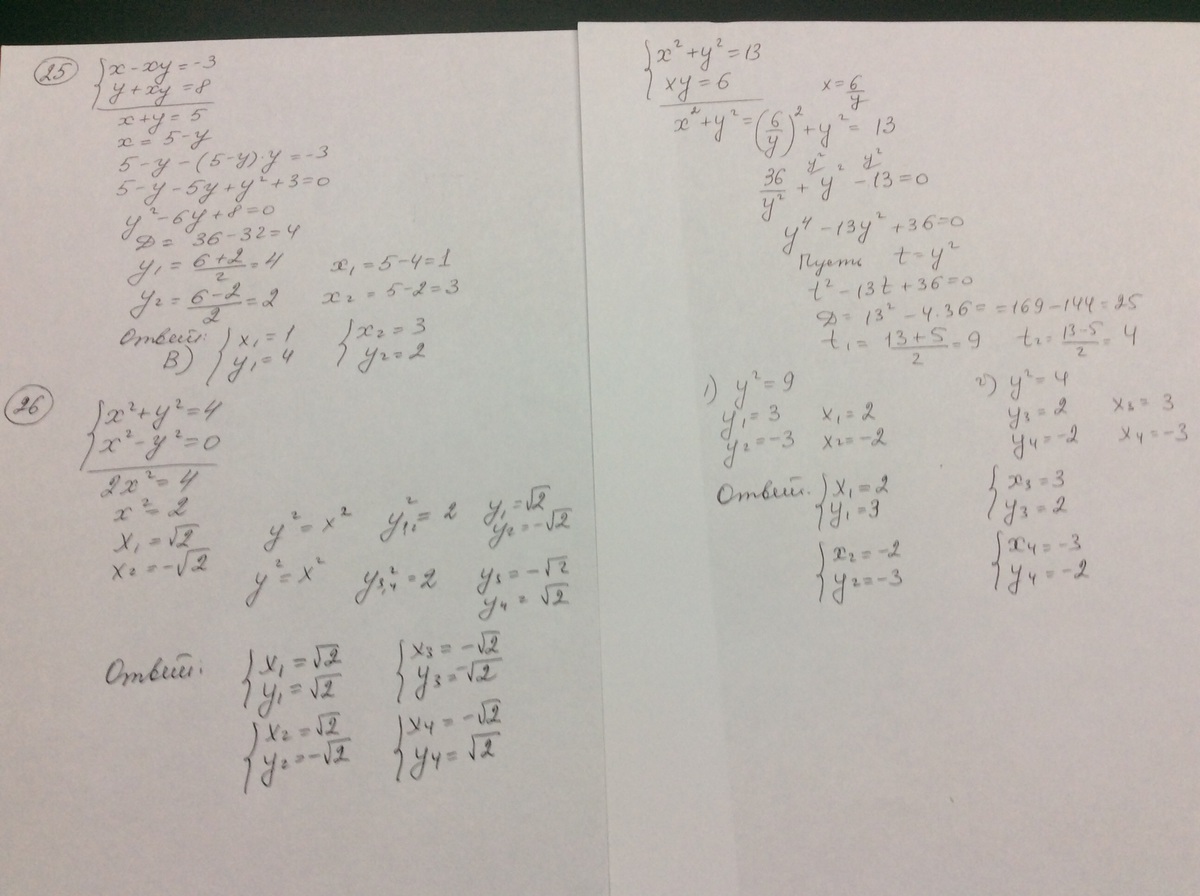 25 { x - xy = -3
y + xy = 8
x + y = 5
x = 5 - y
5 - y - (5 - y)·y = -3
5 - y - 5y + y² + 3 = 0
y² - 6y + 8 = 0
D = 36 - 32 = 4
y₁ = (6+2)/2 = 4 x₁ = 5 - 4 = 1
y₂ = (6-2)/2 = 2 x₂ = 5 - 2 = 3
Ответ: { x₁ = 1 { x₂ = 3
В) y₁ = 4 y₂ = 2
26 { x² + y² = 4
x² - y² = 0
2x² = 4
x² = 2
x₁ = √2 y² = x² y²₁,₂ = 2 y₁ = √2
y₂ = -√2
x₂ = -√2 y² = x² y²₃,₄ = 2 y₃ = -√2
y₄ = √2
Ответ: { x₁ = √2 { x₃ = -√2
y₁ = √2 y₃ = -√2
{ x₂ = √2 { x₄ = -√2
y₂ = -√2 y₄ = √2
{ x² + y² = 13
xy = 6 x = 6/y
x² + y² = (6/y)² + y² = 13
y² y²
36/y² + y² - 13 = 0
y⁴ - 13y² + 36 = 0
Пусть t = y²
t² - 13t + 36 = 0
D = 13² - 4·36 = = 169 - 144 = 25
t₁ = (13+5)/2 = 9 t₂ = (13-5)/2 = 4
1) y² = 9 2) y² = 4
y₁ = 3 x₁ = 2 y₃ = 2 x₃ = 3
y₂ = -3 x₂ = -2 y₄ = -2 x₄ = -3
Ответ: { x₁ = 2 { x₃ = 3
y₁ = 3 y₃ = 2
{ x₂ = -2 { x₄ = -3
y₂ = -3 y₄ = -2